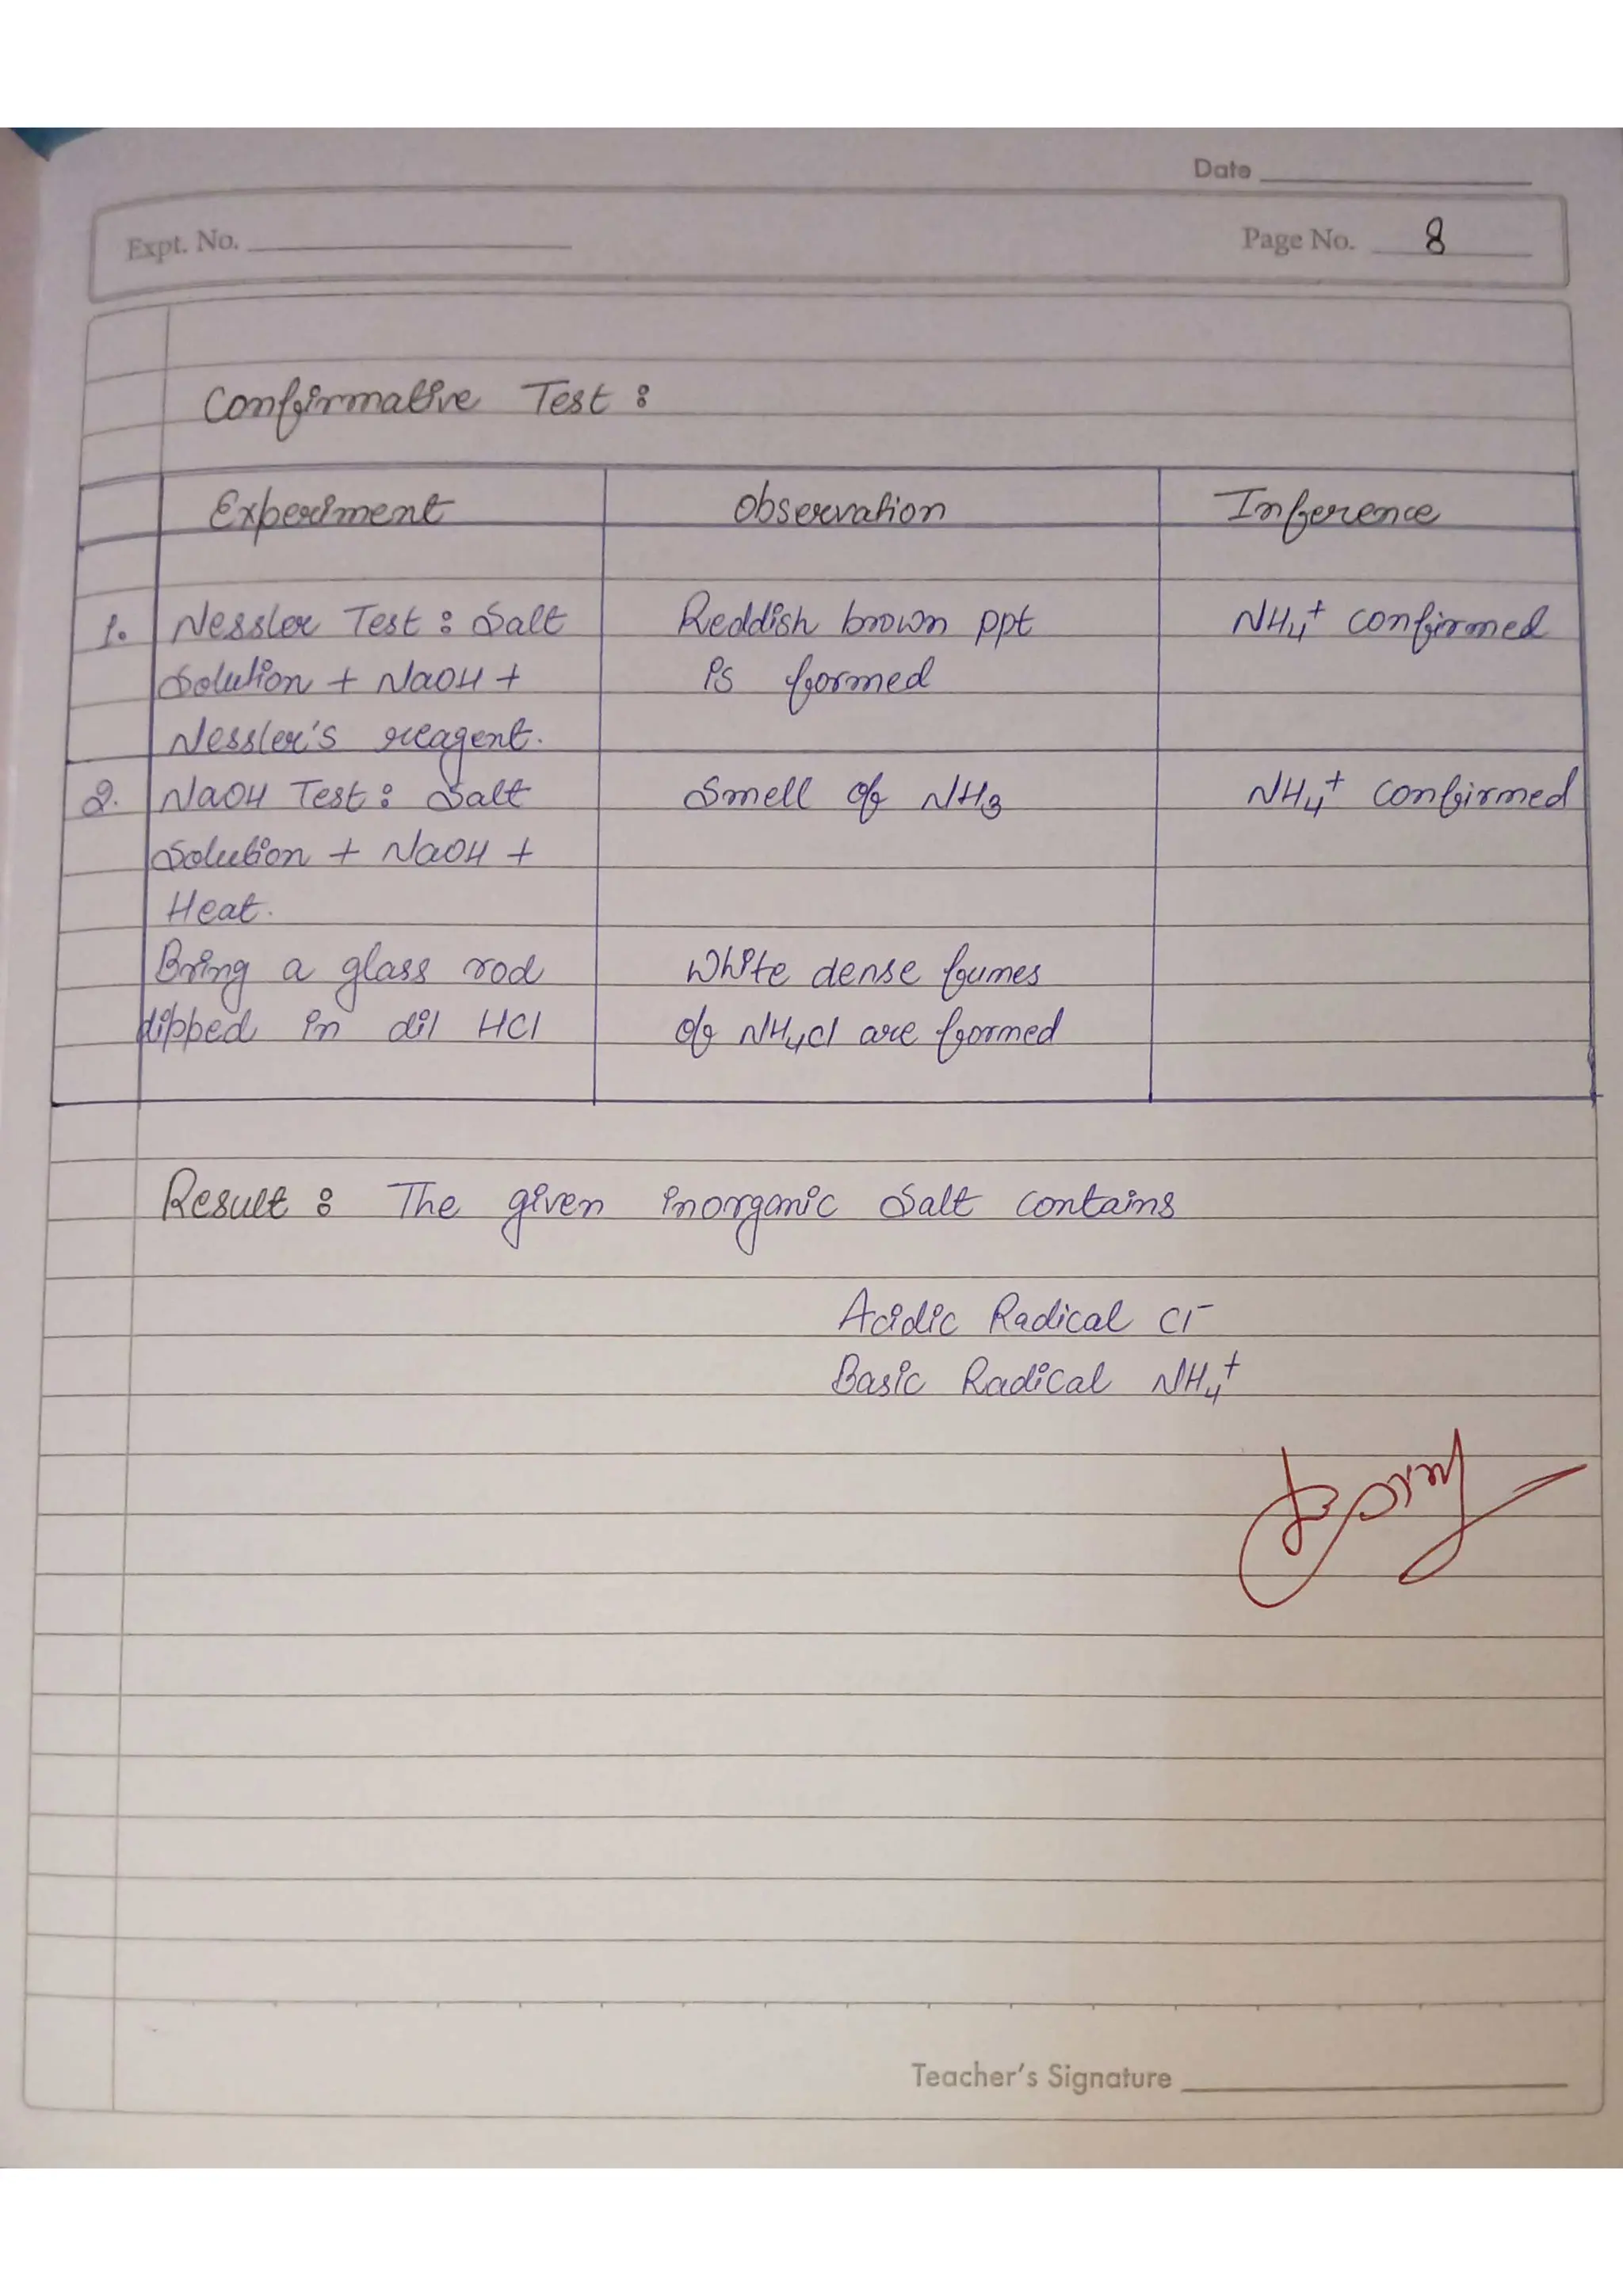 Date
Expt. No.
Page No. 8
Confirmative Test :
Experiment Observation Inference
1. Nessler Test : Salt Reddish brown ppt NH₄⁺ confirmed
Solution + NaOH + is formed
Nessler's reagent.
2. NaOH Test : Salt Smell of NH₃ NH₄⁺ confirmed
Solution + NaOH +
Heat.
Bring a glass rod White dense fumes
dipped in dil HCl of NH₄Cl are formed
Result : The given inorganic Salt contains
Acidic Radical Cl⁻
Basic Radical NH₄⁺
Teacher's Signature